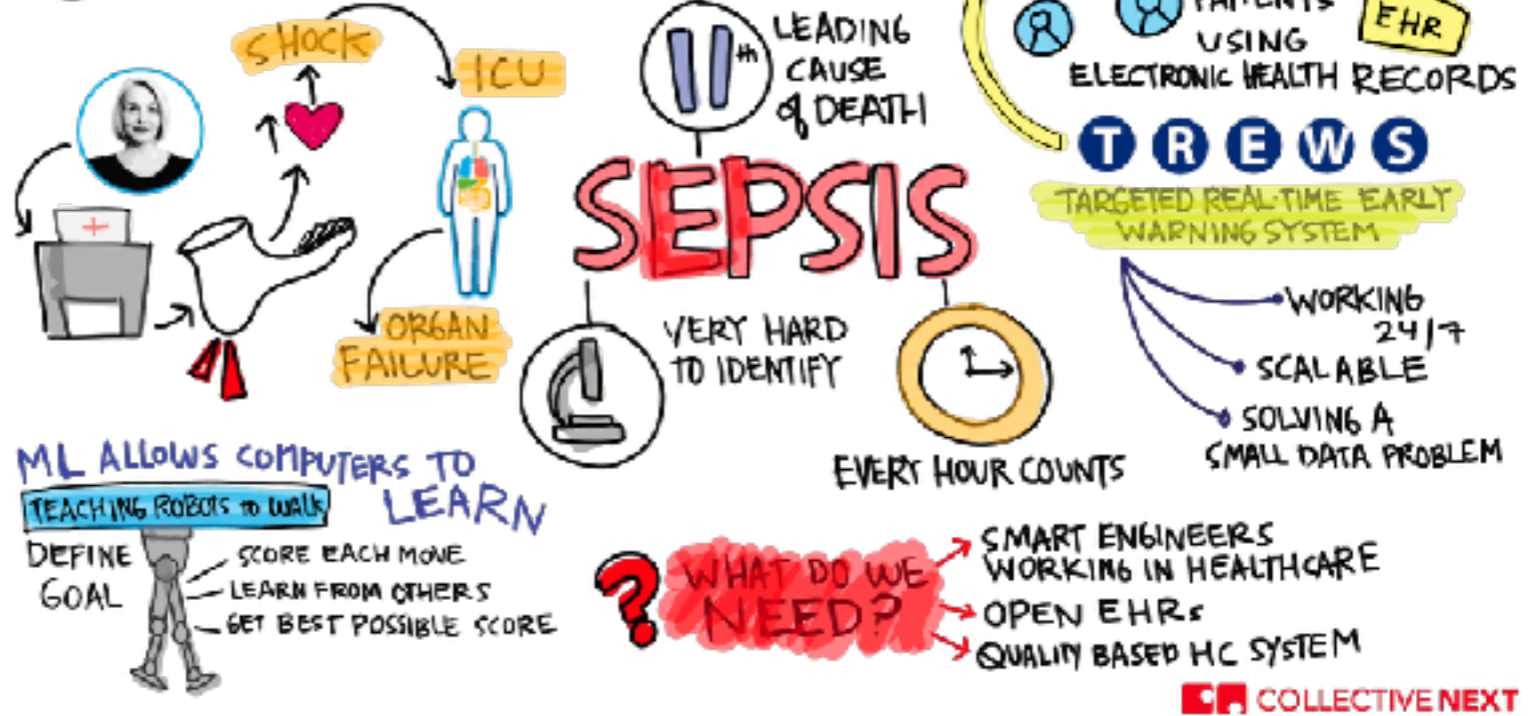 SHOCK
ICU
ORGAN
FAILURE
11th
LEADING
CAUSE
of DEATH
SEPSIS
VERY HARD
TO IDENTIFY
EVERY HOUR COUNTS
PATIENTS
USING
ELECTRONIC HEALTH RECORDS
EHR
TREWS
TARGETED REAL-TIME EARLY
WARNING SYSTEM
WORKING
24/7
SCALABLE
SOLVING A
SMALL DATA PROBLEM
ML ALLOWS COMPUTERS TO
LEARN
TEACHING ROBOTS TO WALK
DEFINE
GOAL
SCORE EACH MOVE
LEARN FROM OTHERS
GET BEST POSSIBLE SCORE
?
WHAT DO WE
NEED?
SMART ENGINEERS
WORKING IN HEALTHCARE
OPEN EHRs
QUALITY BASED HC SYSTEM
COLLECTIVE NEXT